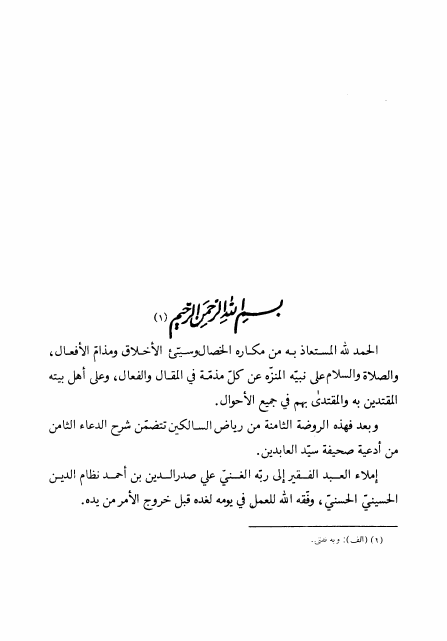 بسم الله الرحمن الرحيم (١)
الحمد لله المستعاذ به من مكاره الخصال وسيّئ الأخلاق ومذامّ الأفعال،
والصلاة والسلام على نبيّه المنزّه عن كلّ مذمّة في المقال والفعال، وعلى أهل بيته
المقتدين به والمقتدىٰ بهم في جميع الأحوال.
وبعد فهذه الروضة الثامنة من رياض السالكين تتضمّن شرح الدعاء الثامن
من أدعية صحيفة سيّد العابدين.
إملاء العبد الفقير إلى ربّه الغنيّ علي صدرالدين بن أحمد نظام الدين
الحسينيّ الحسنيّ، وفّقه الله للعمل في يومه لغده قبل خروج الأمر من يده.
(١) (الف): وبه ثقتي.